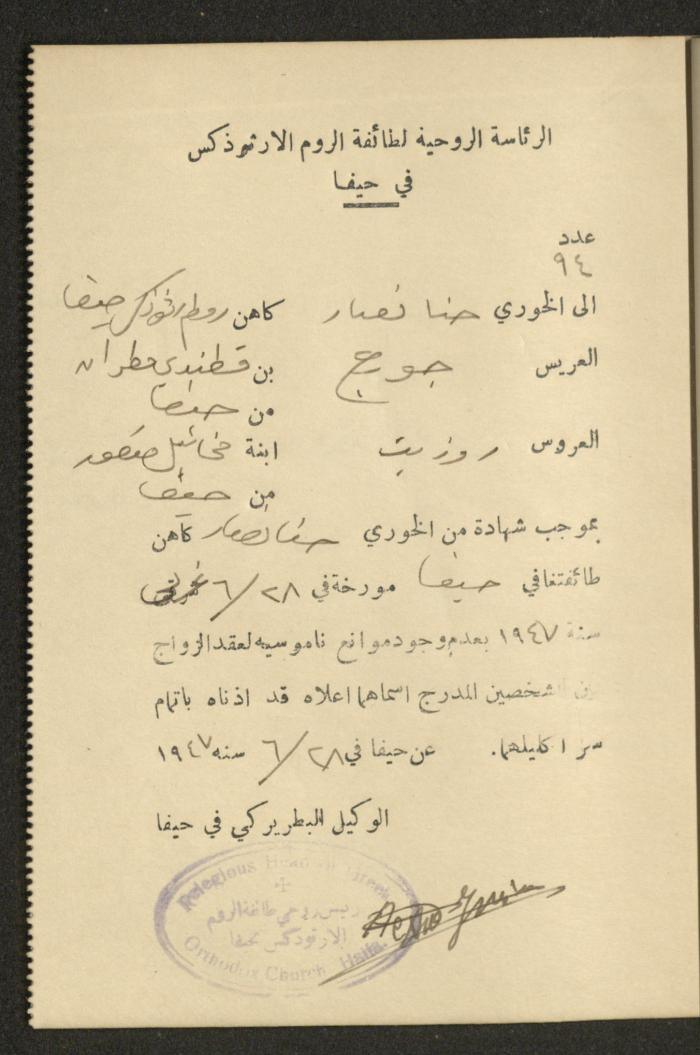 الرئاسة الروحية لطائفة الروم الارثوذكس
في حيفا
عدد
٩٤
الى الخوري حنا نصار كاهن روم ارثوذكس حيفا
العريس جورج بن قسطندي مطران
من حيفا
العروس روزيت ابنة مخائيل منصور
من حيفا
بموجب شهادة من الخوري حنا نصار كاهن
طائفتنا في حيفا مورخة في ٢٨/٦
سنة ١٩٤٧ بعدم وجود موانع ناموسيه لعقد الزواج
الشخصين المدرج اسماهما اعلاه قد اذناه باتمام
سر اكليلهما. عن حيفا في ٢٨/٦ سنه ١٩٤٧
الوكيل البطريركي في حيفا
Relegious Head of Greek
رئيس روحي طائفة الروم
الارثوذكس بحيفا
Orthodox Church Haifa.